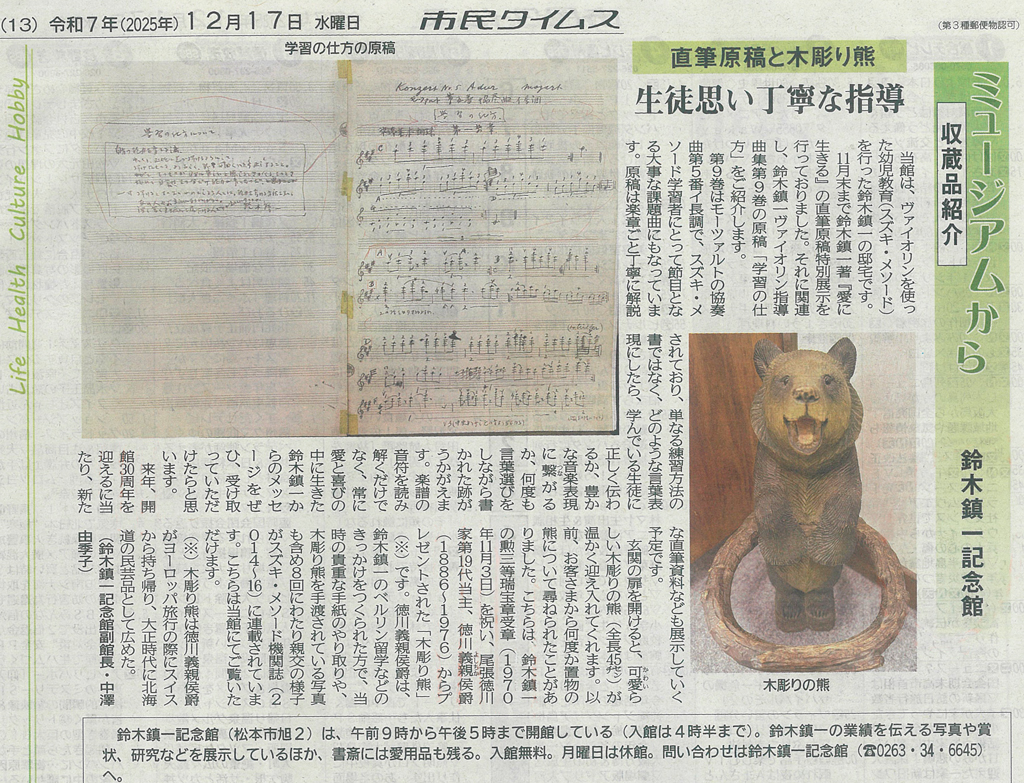 (13) 令和7年(2025年)12月17日 水曜日
市民タイムス
(第3種郵便物認可)
Life Health Culture Hobby
ミュージアムから
収蔵品紹介
鈴木鎮一記念館
直筆原稿と木彫り熊
生徒思い丁寧な指導
学習の仕方の原稿
Konzert No. 5 A dur mozart
当館は、ヴァイオリンを使っ
た幼児教育(スズキ・メソード)
を行った鈴木鎮一の邸宅です。
11月末まで鈴木鎮一著『愛に
生きる』の直筆原稿特別展示を
行っておりました。それに関連
し、鈴木鎮一ヴァイオリン指導
曲集第9巻の原稿「学習の仕
方」をご紹介します。
第9巻はモーツァルトの協奏
曲第5番イ長調で、スズキ・メ
ソード学習者にとって節目とな
る大事な課題曲にもなっていま
す。原稿は楽章ごと丁寧に解説
されており、単なる練習方法の
書ではなく、どのような言葉表
現にしたら、学んでいる生徒に
正しく伝わ
るか、豊か
な音楽表現
に繋がる
か、何度も
言葉選びを
しながら書
かれた跡が
うかがえま
す。楽譜の
音符を読み
解くだけで
なく、常に
愛と喜びの
中に生きた
鈴木鎮一か
らのメッセ
ージをぜ
ひ、受け取
っていただ
けたらと思
います。
来年、開
館30周年を
迎えるに当
たり、新た
な直筆資料なども展示していく
予定です。
玄関の扉を開けると、可愛ら
しい木彫りの熊(全長45㌢)が
温かく迎え入れてくれます。以
前、お客さまから何度か置物の
熊について尋ねられたことがあ
りました。こちらは、鈴木鎮一
の勲三等瑞宝章受章(1970
年11月3日)を祝い、尾張徳川
家第19代当主、徳川義親侯爵
(1886~1976)からプ
レゼントされた「木彫り熊」
(※)です。徳川義親侯爵は、
鈴木鎮一のベルリン留学などの
きっかけをつくられた方で、当
時の貴重な手紙のやり取りや、
木彫り熊を手渡されている写真
も含め8回にわたり親交の様子
がスズキ・メソード機関誌(2
014~16)に連載されていま
す。こちらは当館にてご覧いた
だけます。
(※)木彫り熊は徳川義親侯爵
がヨーロッパ旅行の際にスイス
から持ち帰り、大正時代に北海
道の民芸品として広めた。
(鈴木鎮一記念館副館長・中澤
由季子)
木彫りの熊
鈴木鎮一記念館(松本市旭2)は、午前9時から午後5時まで開館している(入館は4時半まで)。鈴木鎮一の業績を伝える写真や賞
状、研究などを展示しているほか、書斎には愛用品も残る。入館無料。月曜日は休館。問い合わせは鈴木鎮一記念館(☎0263・34・6645)
へ。